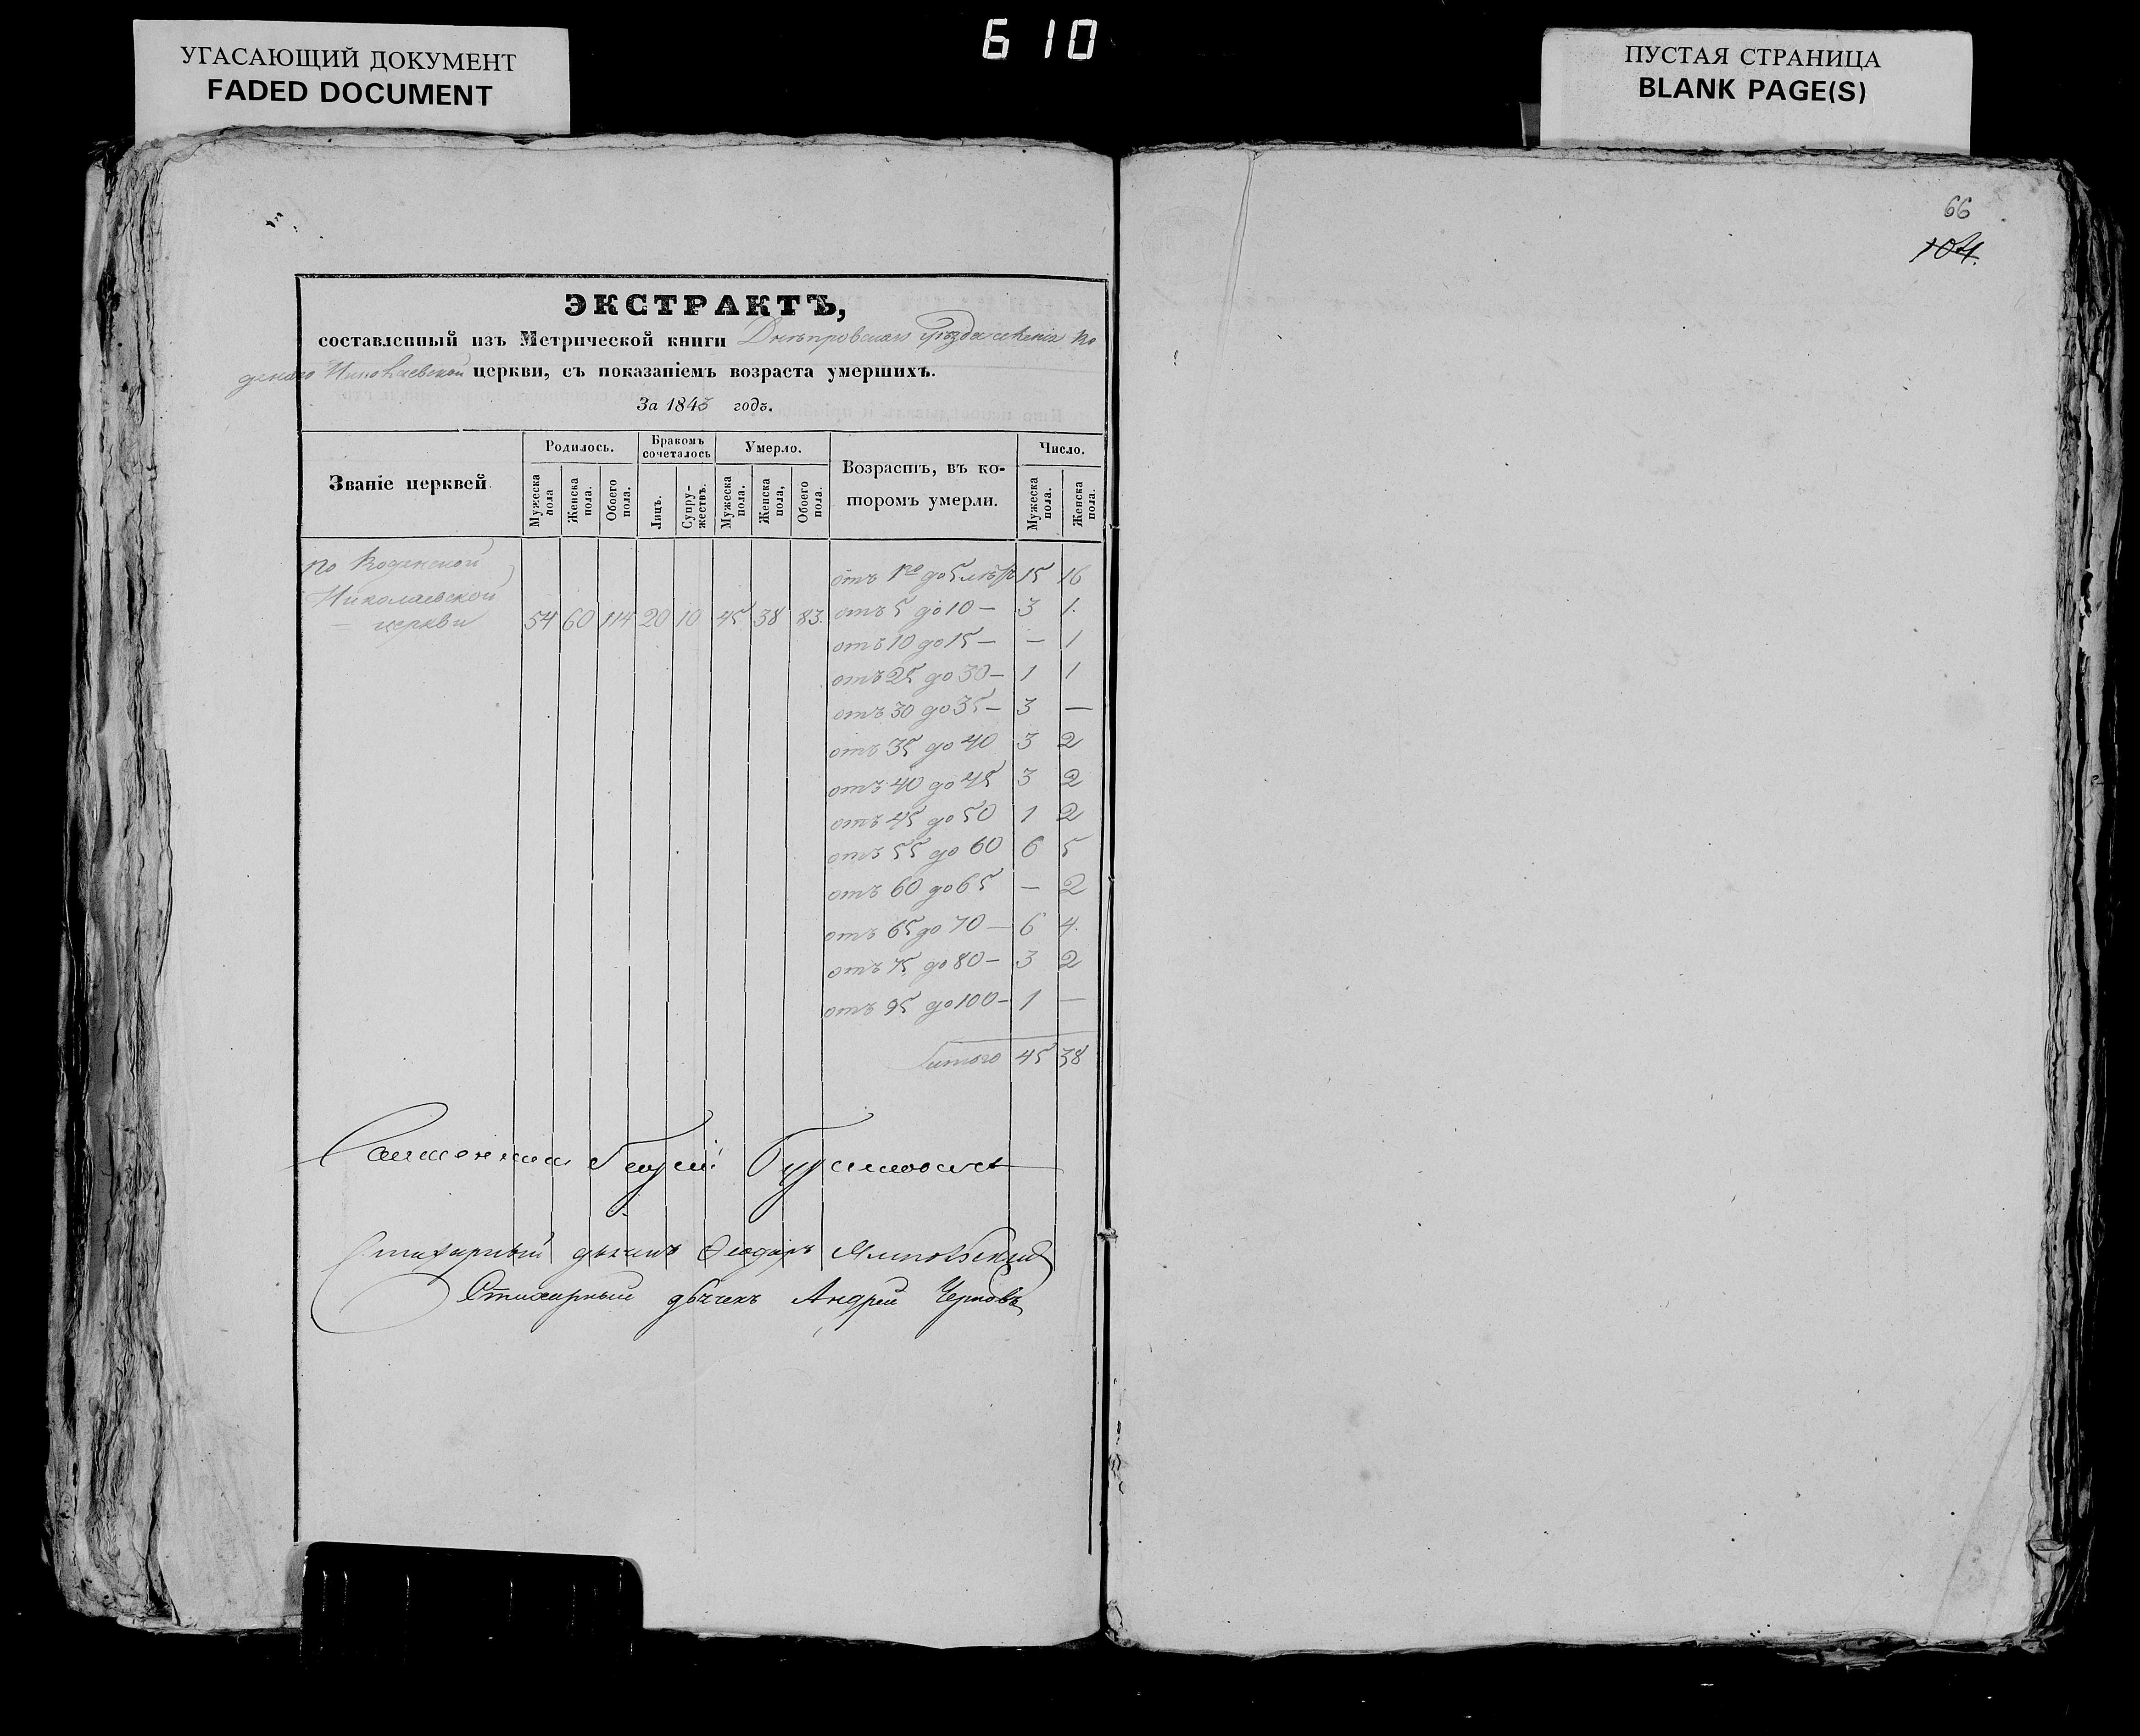 УГАСАЮЩИЙ ДОКУМЕНТ
FADED DOCUMENT
610
ПУСТАЯ СТРАНИЦА
BLANK PAGE(S)
66
104.
ЭКСТРАКТЪ,
составленный изъ Метрической книги Днѣпровскаго уѣзда селенія Ко
Николаевской церкви, съ показаніемъ возраста умершихъ.
За 1843 годъ.
Званіе церквей.
Родилось.
Бракомъ сочеталось
Умерло.
Возрастъ, въ ко-
торомъ умерли.
Число.
Мужеска пола
Женска пола.
Обоего пола.
Лицъ.
Супру-жествъ.
Мужеска пола.
Женска пола,
Обоего пола.
Мужеска пола.
Женска пола.
По
Николаевской
церкви 54 60 114 20 10 45 38 83.
отъ го до 5 лѣтъ 15 16
отъ 5 до 10 — 3 1.
отъ 10 до 15 — — 1
отъ 25 до 30 — 1 1
отъ 30 до 35 — 3 —
отъ 35 до 40 3 2
отъ 40 до 45 3 2
отъ 45 до 50 1 2
отъ 55 до 60 6 5
отъ 60 до 65 — 2
отъ 65 до 70 — 6 4.
отъ 75 до 80 — 3 2
отъ 95 до 100 — 1 —
итого 45 38
Священникъ
Стихарный дьячекъ Ѳеодоръ
Стихарный дьячекъ Андрей Черновъ